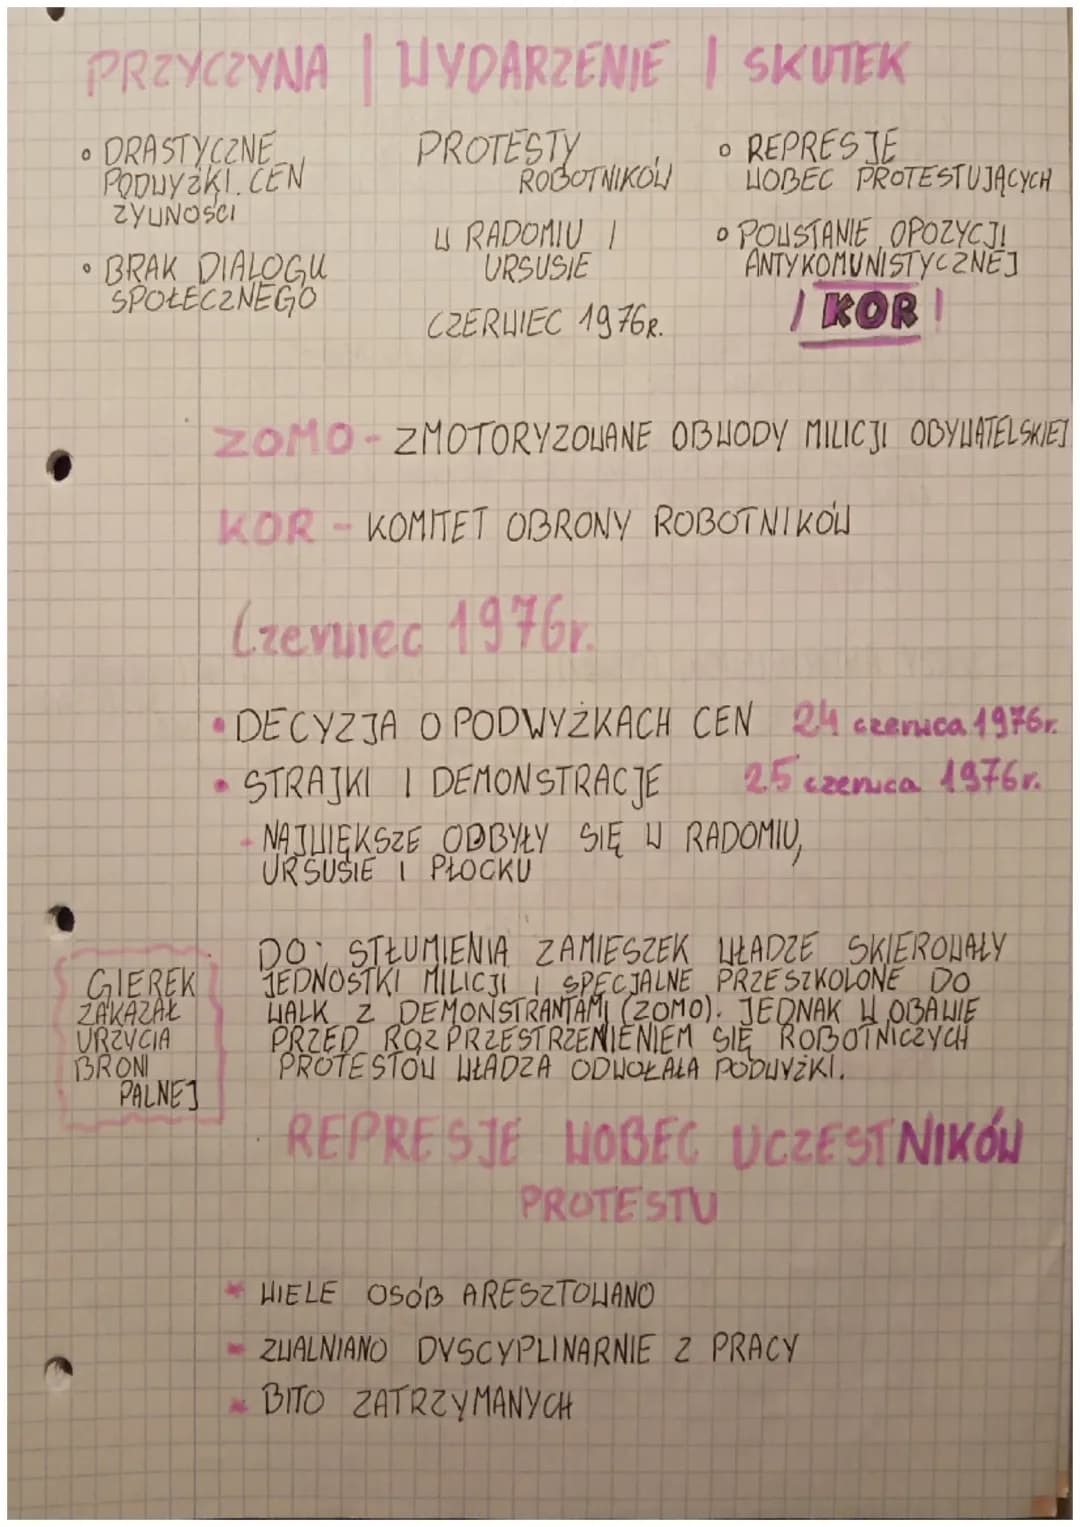 PRZYCZYNA | WYDARZENIE | SKUTEK
• DRASTYCZNE
PODWYŻKI CEN
ŻYWNOŚCI
• BRAK DIALOGU
SPOŁECZNEGO
PROTESTY
ROBOTNIKÓW
W RADOMIU I
URSUSIE
CZERWIEC 1976R.
• REPRESJE
WOBEC PROTESTUJĄCYCH
• POWSTANIE OPOZYCJI
ANTYKOMUNISTYCZNEJ
/ KOR !
ZOMO - ZMOTORYZOWANE OBWODY MILICJI OBYWATELSKIEJ
KOR - KOMITET OBRONY ROBOTNIKÓW
Czerwiec 1976r.
• DECYZJA O PODWYŻKACH CEN 24 czerwca 1976r.
• STRAJKI I DEMONSTRACJE 25 czerwca 1976r.
- NAJWIĘKSZE ODBYŁY SIĘ W RADOMIU,
URSUSIE I PŁOCKU
GIEREK
ZAKAZAŁ
URZYCIA
BRONI
PALNEJ
DO STŁUMIENIA ZAMIESZEK WŁADZE SKIEROWAŁY
JEDNOSTKI MILICJI I SPECJALNE PRZESZKOLONE DO
WALK Z DEMONSTRANTAMI (ZOMO). JEDNAK W OBAWIE
PRZED ROZPRZESTRZENIENIEM SIĘ ROBOTNICZYCH
PROTESTÓW WŁADZA ODWOŁAŁA PODWYŻKI.
REPRESJE WOBEC UCZESTNIKÓW
PROTESTU
* WIELE OSÓB ARESZTOWANO
* ZWALNIANO DYSCYPLINARNIE Z PRACY
* BITO ZATRZYMANYCH